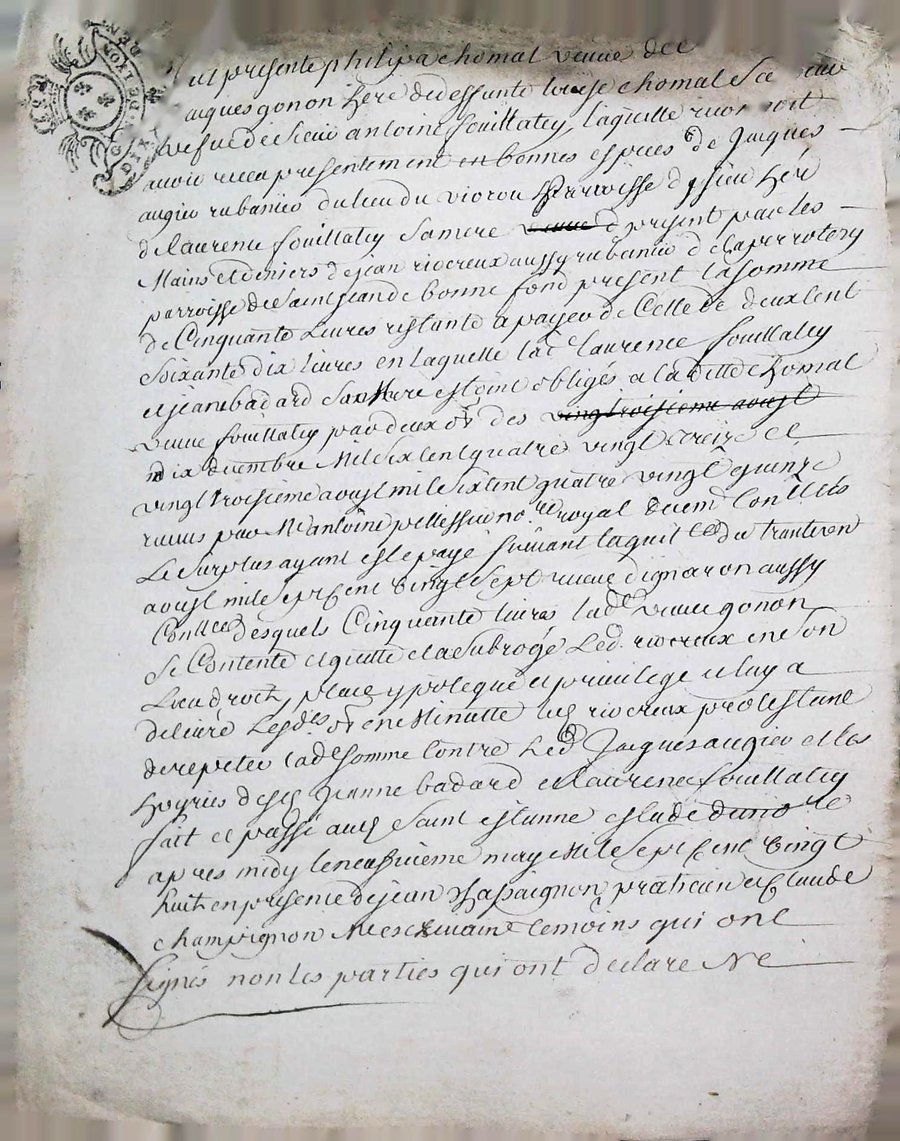 est presente philipa chomal veuve de
Jacques gonon here de deffunte louise chomal sa
vefve de feu antoine fouillatey laquelle
avoir receu presentement en bonnes espres de Jacques
augier rubanier du lieu du vioron parroisse d here
de laurence fouillatey sa mere d present par les
Mains et deniers de jean riocreux aussy rubanier de la perrotery
parroisse de Saint Jean de bonne fond present la somme
de Cinquante Livres restante a payer de Celle de deux Cent
Soixante dix livres en laquelle lad laurence fouillatey
et jeane badard sa Mere estoint obligés a laditte chomal
veuve fouillatey par deux des vingtroisieme aoust
dix decembre Mil six Cent quatre vingt treize et
vingt troisieme aoust mil six Cent quatre vingt quinze
receus par Me antoine pellissier nore royal
Le Surplus ayant esté payé suivant la quitce du trante un
aoust mil sept Cent vingt sept receue dignaron aussy
Conller desquels Cinquante livres lade veuve gonon
Se Contente et quitte et a subrogé Led. riocreux en son
Lieu droit, place ypoteque et privilege et luy a
delivré Lesdes en Minutte led riocreux protestant
de repeter lade somme Contre Led Jacques augier et les
hoyries desd Jeanne badard et laurence fouillatey
fait et passé aud Saint estienne estude du nore
apres midy le neufvieme may Mil Sept Cent vingt
huit en presence de jean Chapaignon praticien et Claude
champignon Me escrivain temoins qui ont
signés non les parties qui ont declare Ne